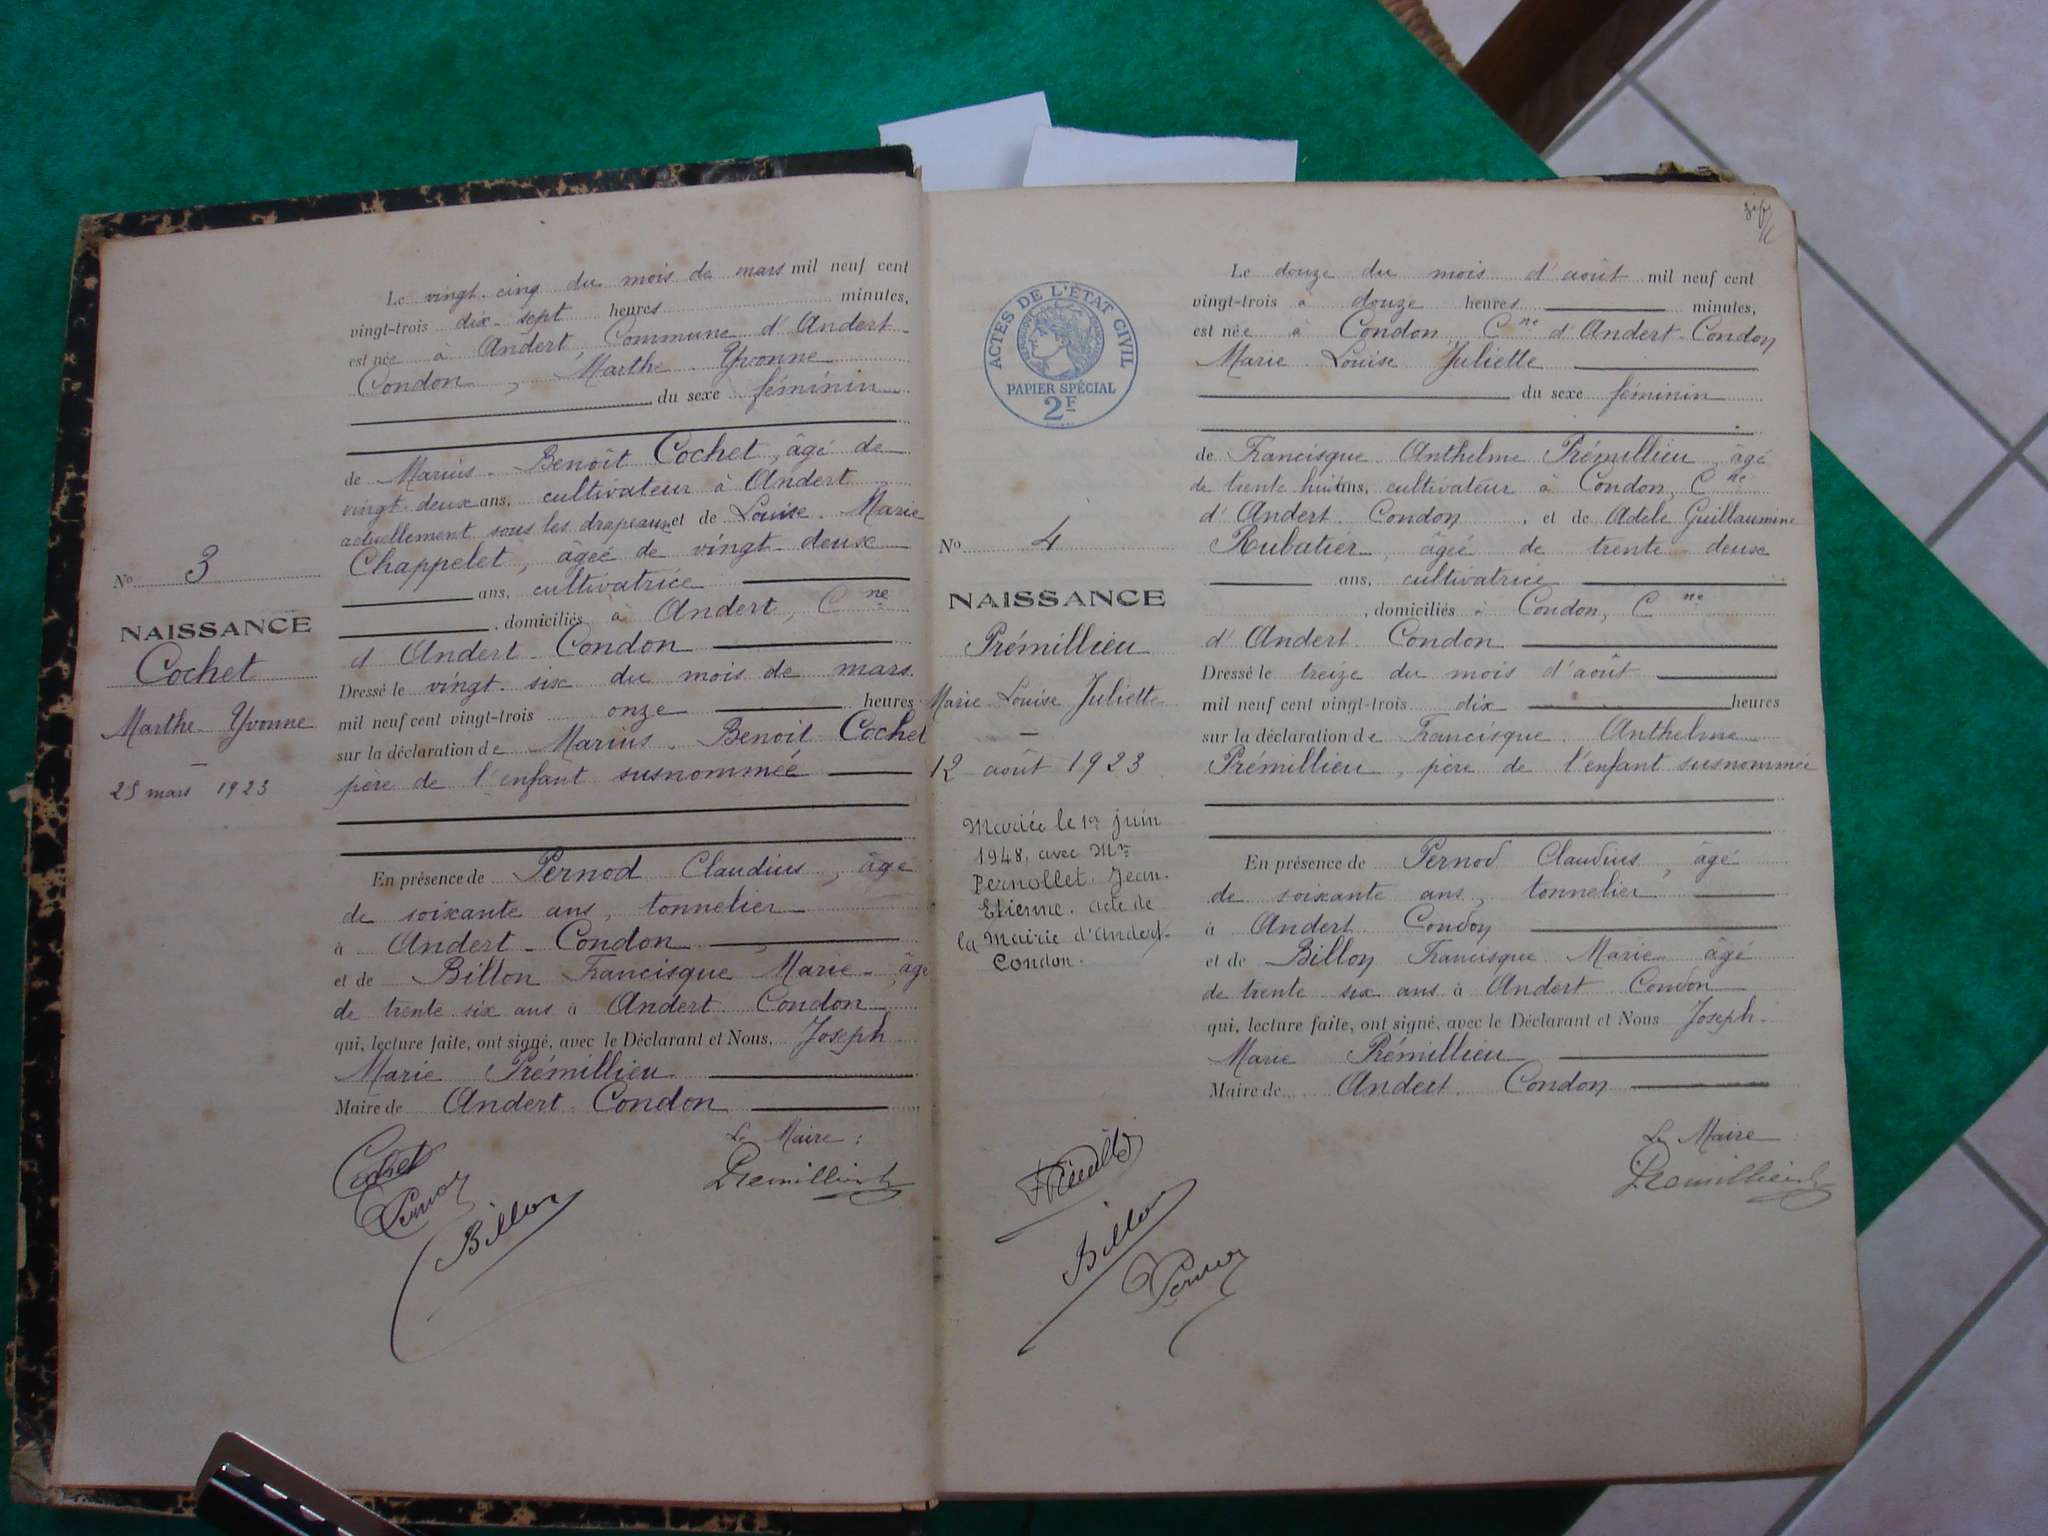 Le vingt-cinq du mois de mars mil neuf cent
vingt-trois dix-sept heures minutes,
est née à Andert, Commune d'Andert-
Condon, Marthe-Yvonne
du sexe féminin
de Marius-Benoît Cochet, âgé de
vingt-deux ans, cultivateur à Andert
actuellement sous les drapeaux et de Louise-Marie
Chappelet, âgée de vingt-deux
ans, cultivatrice
, domiciliés à Andert, Cne
d'Andert-Condon
Dressé le vingt-six du mois de mars
mil neuf cent vingt-trois onze heures
sur la déclaration de Marius-Benoit Cochet
père de l'enfant susnommée
En présence de Pernod Claudius, âgé
de soixante ans, tonnelier
à Andert-Condon,
et de Billon Francisque Marie, âgé
de trente six ans à Andert-Condon
qui, lecture faite, ont signé, avec le Déclarant et Nous, Joseph-
Marie Prémillieu
Maire de Andert-Condon
Le Maire :
Cochet
Pernod
Billon
Premillieu
No 3
NAISSANCE
Cochet
Marthe-Yvonne
25 mars 1923
ACTES DE L'ÉTAT CIVIL
PAPIER SPÉCIAL
2F
No 4
NAISSANCE
Prémillieu
Marie-Louise Juliette
12 août 1923
Mariée le 1er juin
1948, avec Mr
Pernollet Jean-
Etienne. acte de
la Mairie d'Andert-
Condon.
Le douze du mois d'août mil neuf cent
vingt-trois à douze heures minutes,
est née à Condon, Cne d'Andert-Condon
Marie-Louise Juliette
du sexe féminin
de Francisque-Anthelme Prémillieu, âgé
de trente huit ans, cultivateur à Condon, Cne
d'Andert-Condon, et de Adèle Guillaumine
Rubatier, âgée de trente-deux
ans, cultivatrice
, domiciliés à Condon, Cne
d'Andert-Condon
Dressé le treize du mois d'août
mil neuf cent vingt-trois dix heures
sur la déclaration de Francisque-Anthelme
Prémillieu, père de l'enfant susnommée
En présence de Pernod Claudius, âgé
de soixante ans, tonnelier
à Andert-Condon
et de Billon Francisque Marie âgé
de trente-six ans à Andert-Condon
qui, lecture faite, ont signé, avec le Déclarant et Nous Joseph-
Marie Prémillieu
Maire de Andert-Condon
Le Maire :
Billon
Pernod
Premillieu